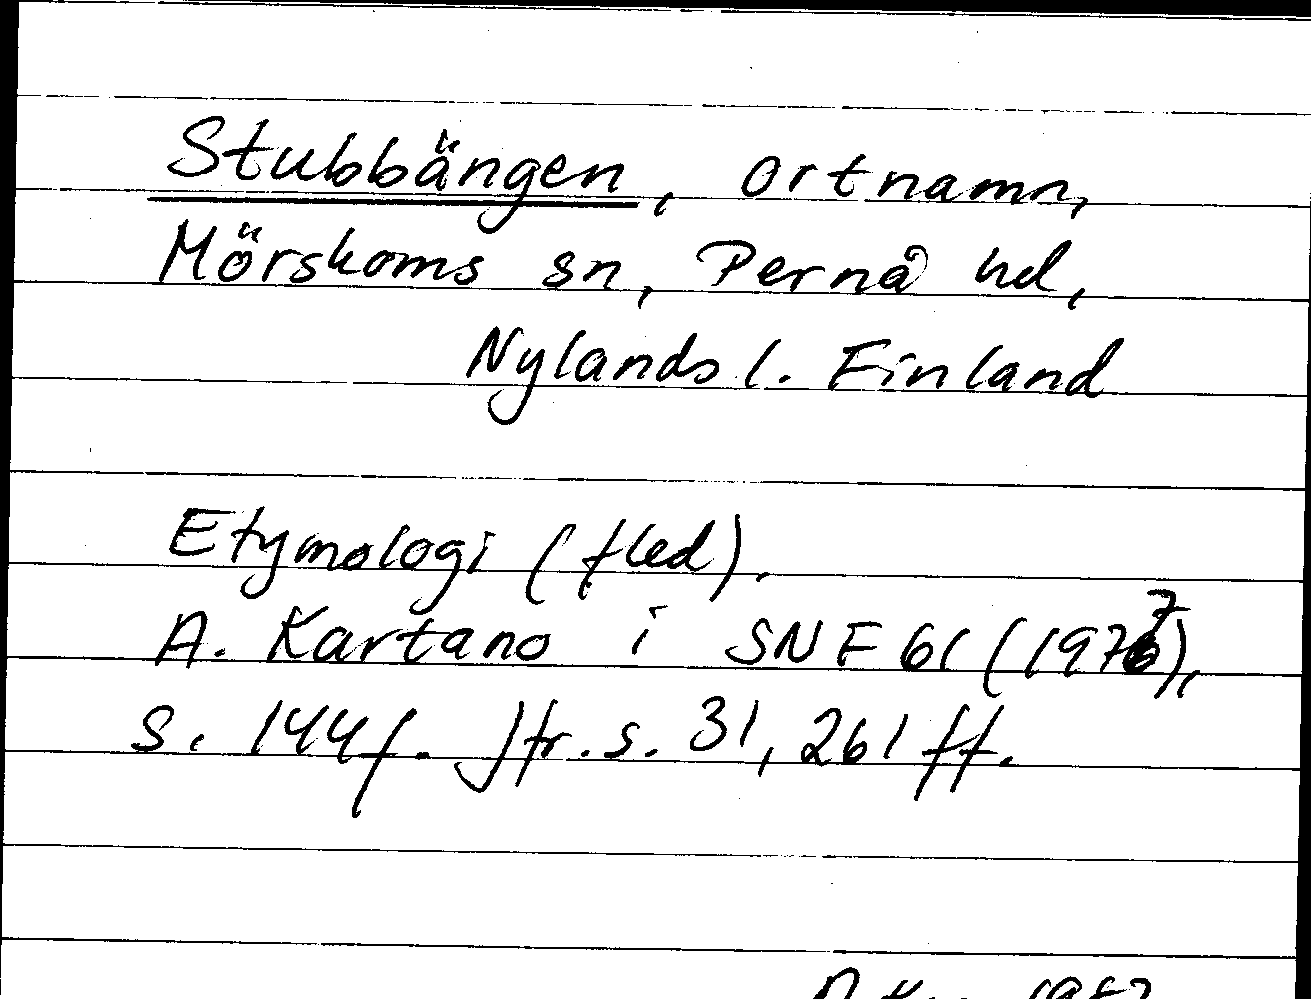 Stubbängen, ortnamn,
Mörskoms sn, Pernå hd,
Nylands l. Finland
Etymologi (fled).
A. Kartano i SNF 61 (1977),
s. 144f. Jfr. s. 31, 261 ff.